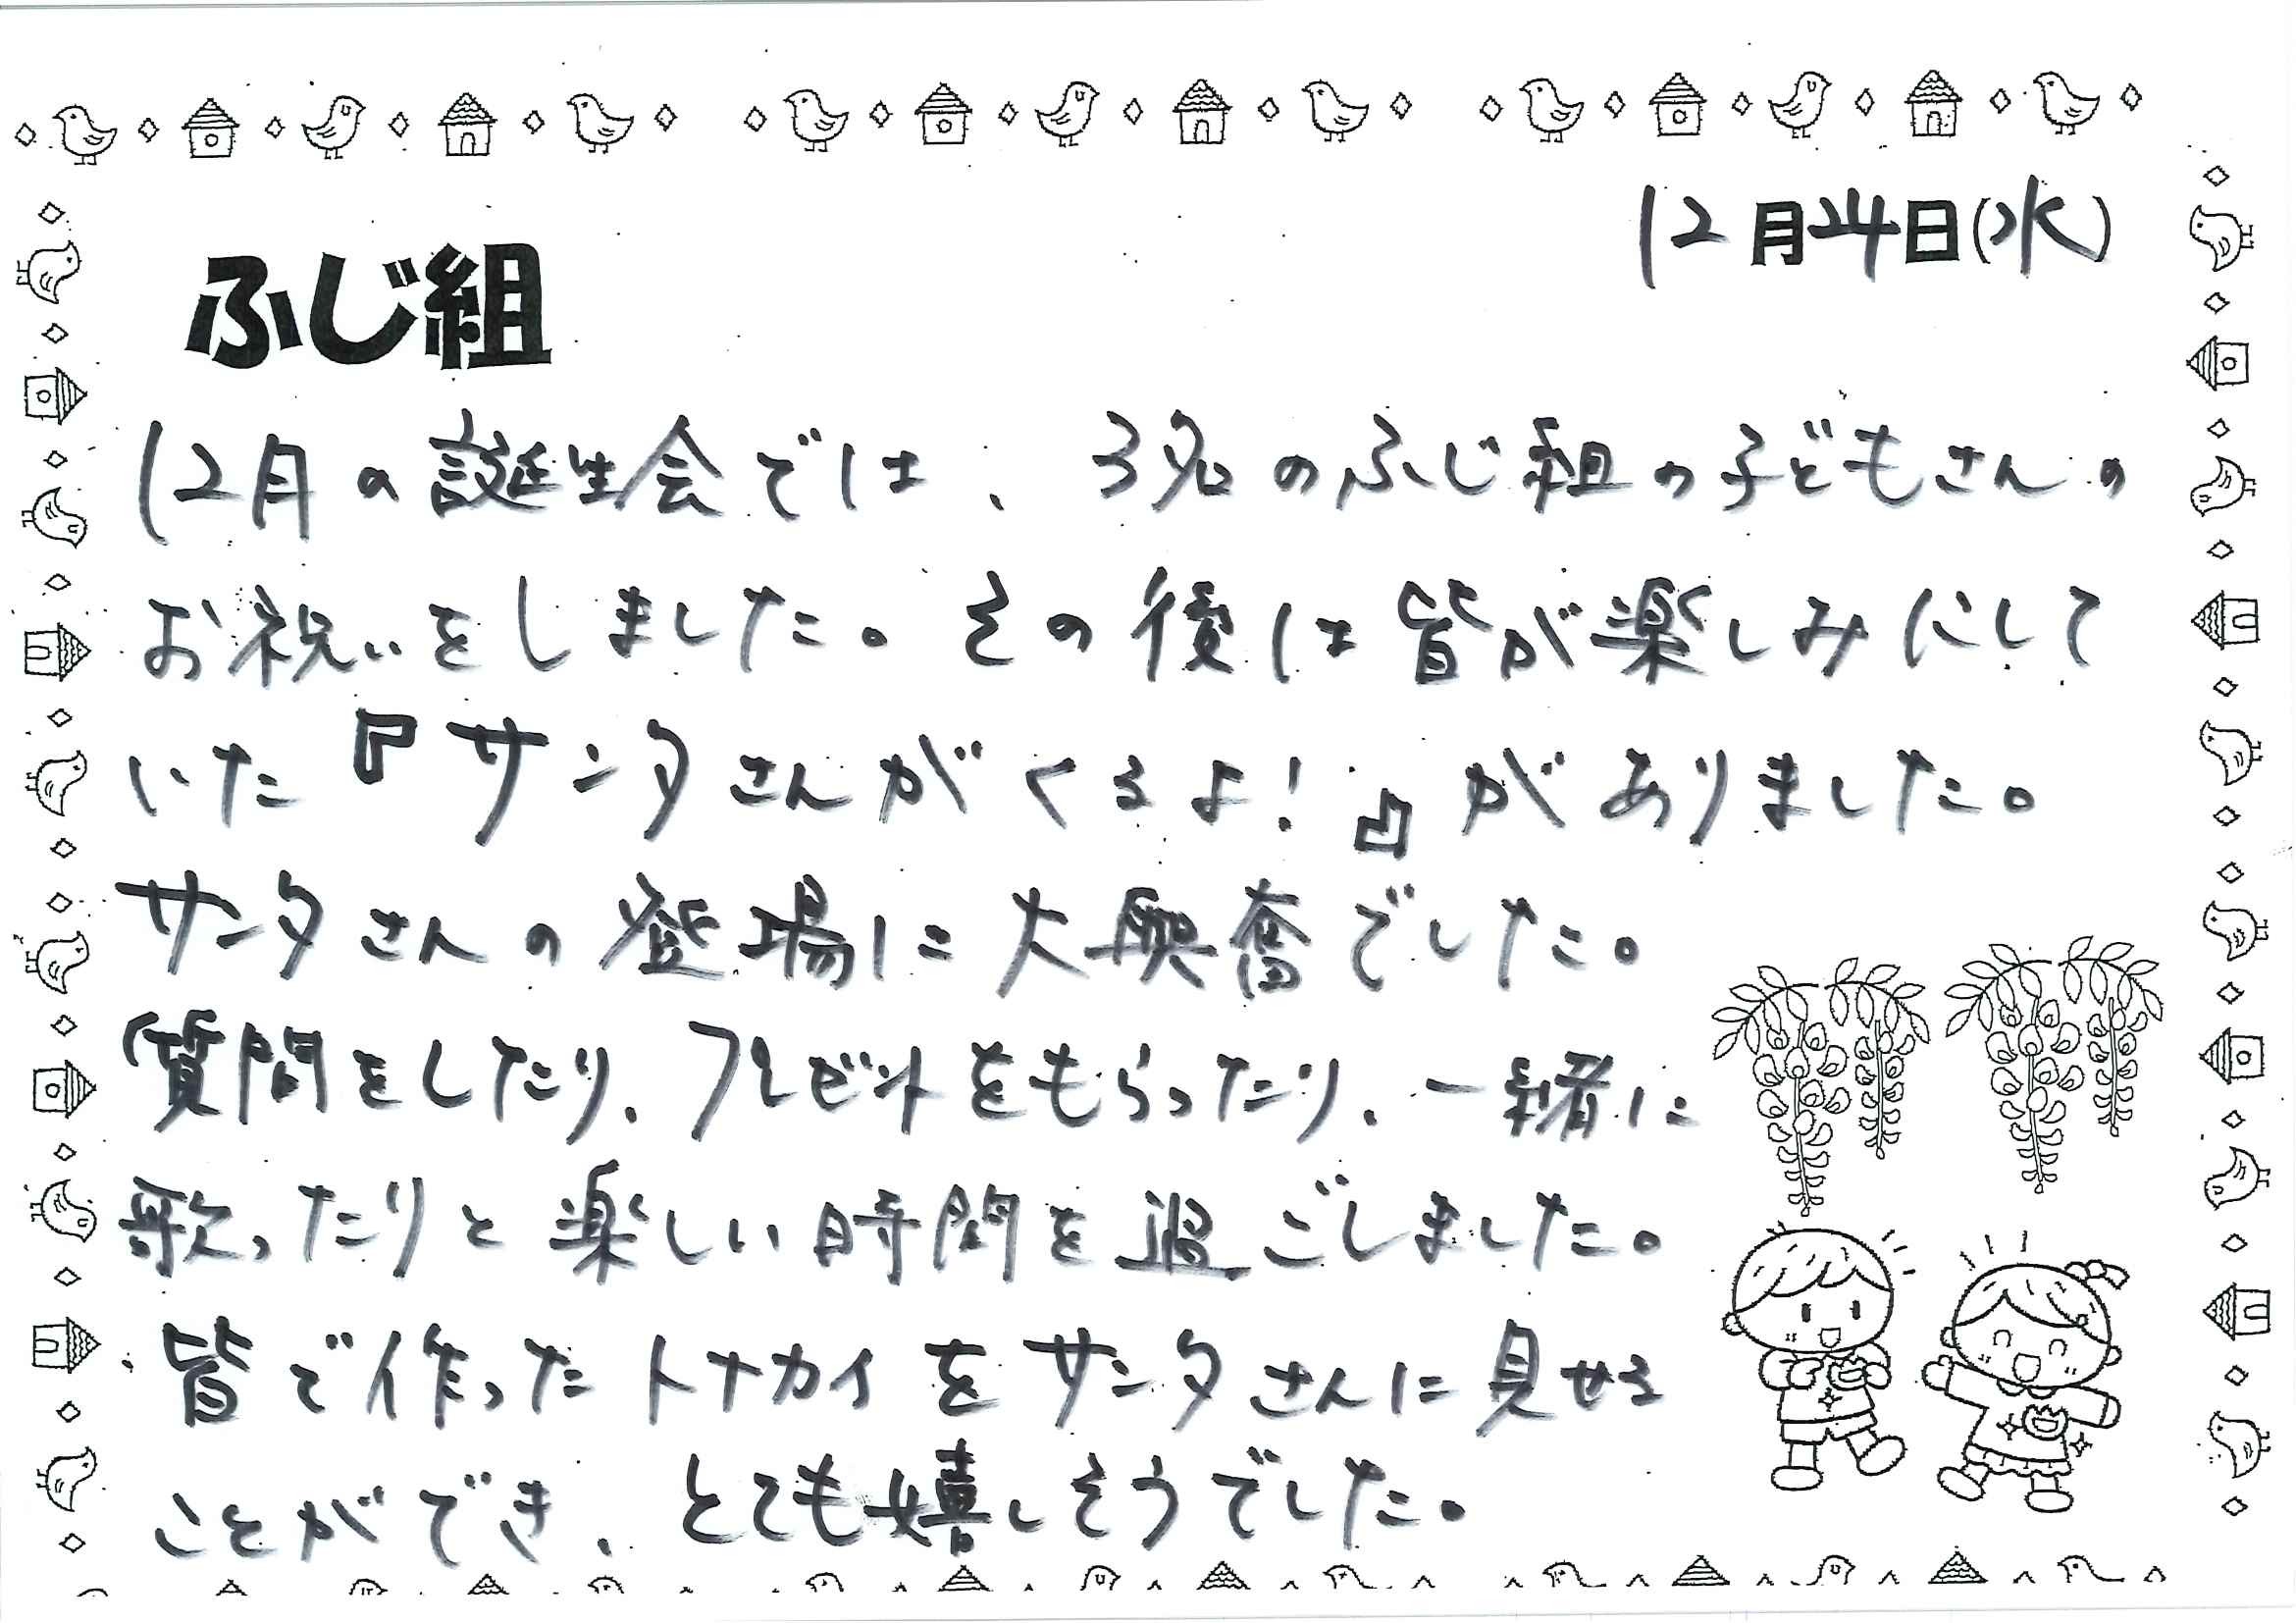 12月24日(水)
ふじ組
12月の誕生会では、3名のふじ組の子どもさんの
お祝いをしました。その後は皆が楽しみにして
いた『サンタさんがくるよ！』がありました。
サンタさんの登場に大興奮でした。
質問をしたり、プレゼントをもらったり、一緒に
歌ったりと楽しい時間を過ごしました。
皆で作ったトナカイをサンタさんに見せる
ことができ、とても嬉しそうでした。